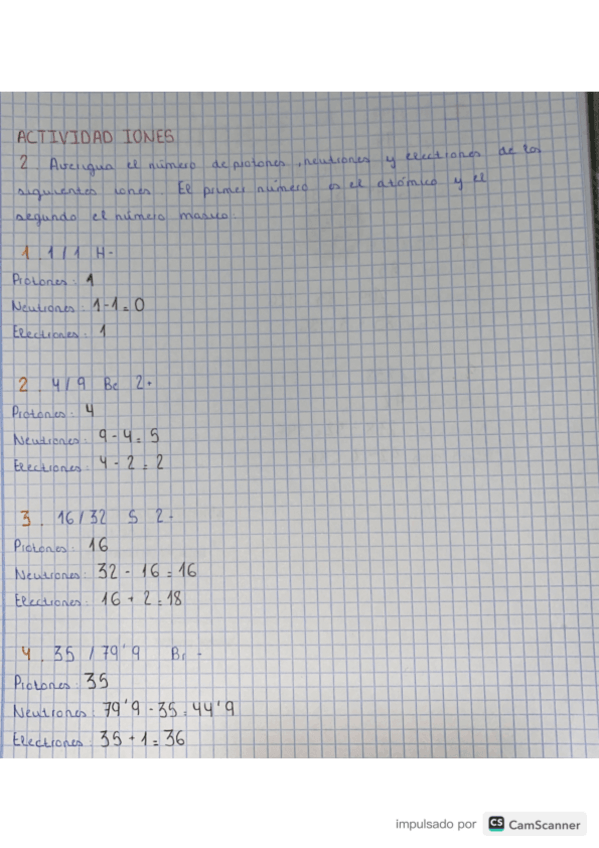 ACTIVIDAD IONES
2. Averigua el número de protones, neutrones y electrones de los
siguientes iones. El primer número es el atómico y el
segundo el número masico.
1. 1/1 H-
Protones: 1
Neutrones: 1-1=0
Electrones: 1
2. 4/9 Be 2+
Protones: 4
Neutrones: 9-4=5
Electrones: 4-2=2
3. 16/32 S 2-
Protones: 16
Neutrones: 32-16=16
Electrones: 16+2=18
4. 35/79'9 Br -
Protones: 35
Neutrones: 79'9-35=44'9
Electrones: 35+1=36
impulsado por CS CamScanner